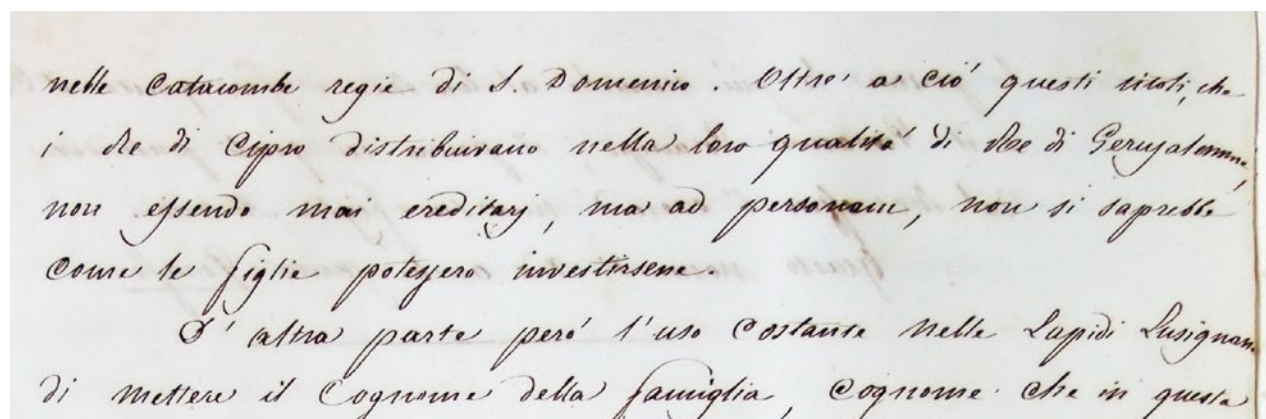 nelle Catacombe regie di S. Domenico. Oltre' a ciò questi titoli, che
i Re di Cipro distribuivano nella loro qualità di Re di Gerusalemme,
non essendo mai ereditarj, ma ad personam, non si saprebbe
come le figlie potessero investirsene.
D'altra parte però l'uso costante nelle Lapidi Lusignane
di mettere il Cognome della famiglia, cognome che in queste